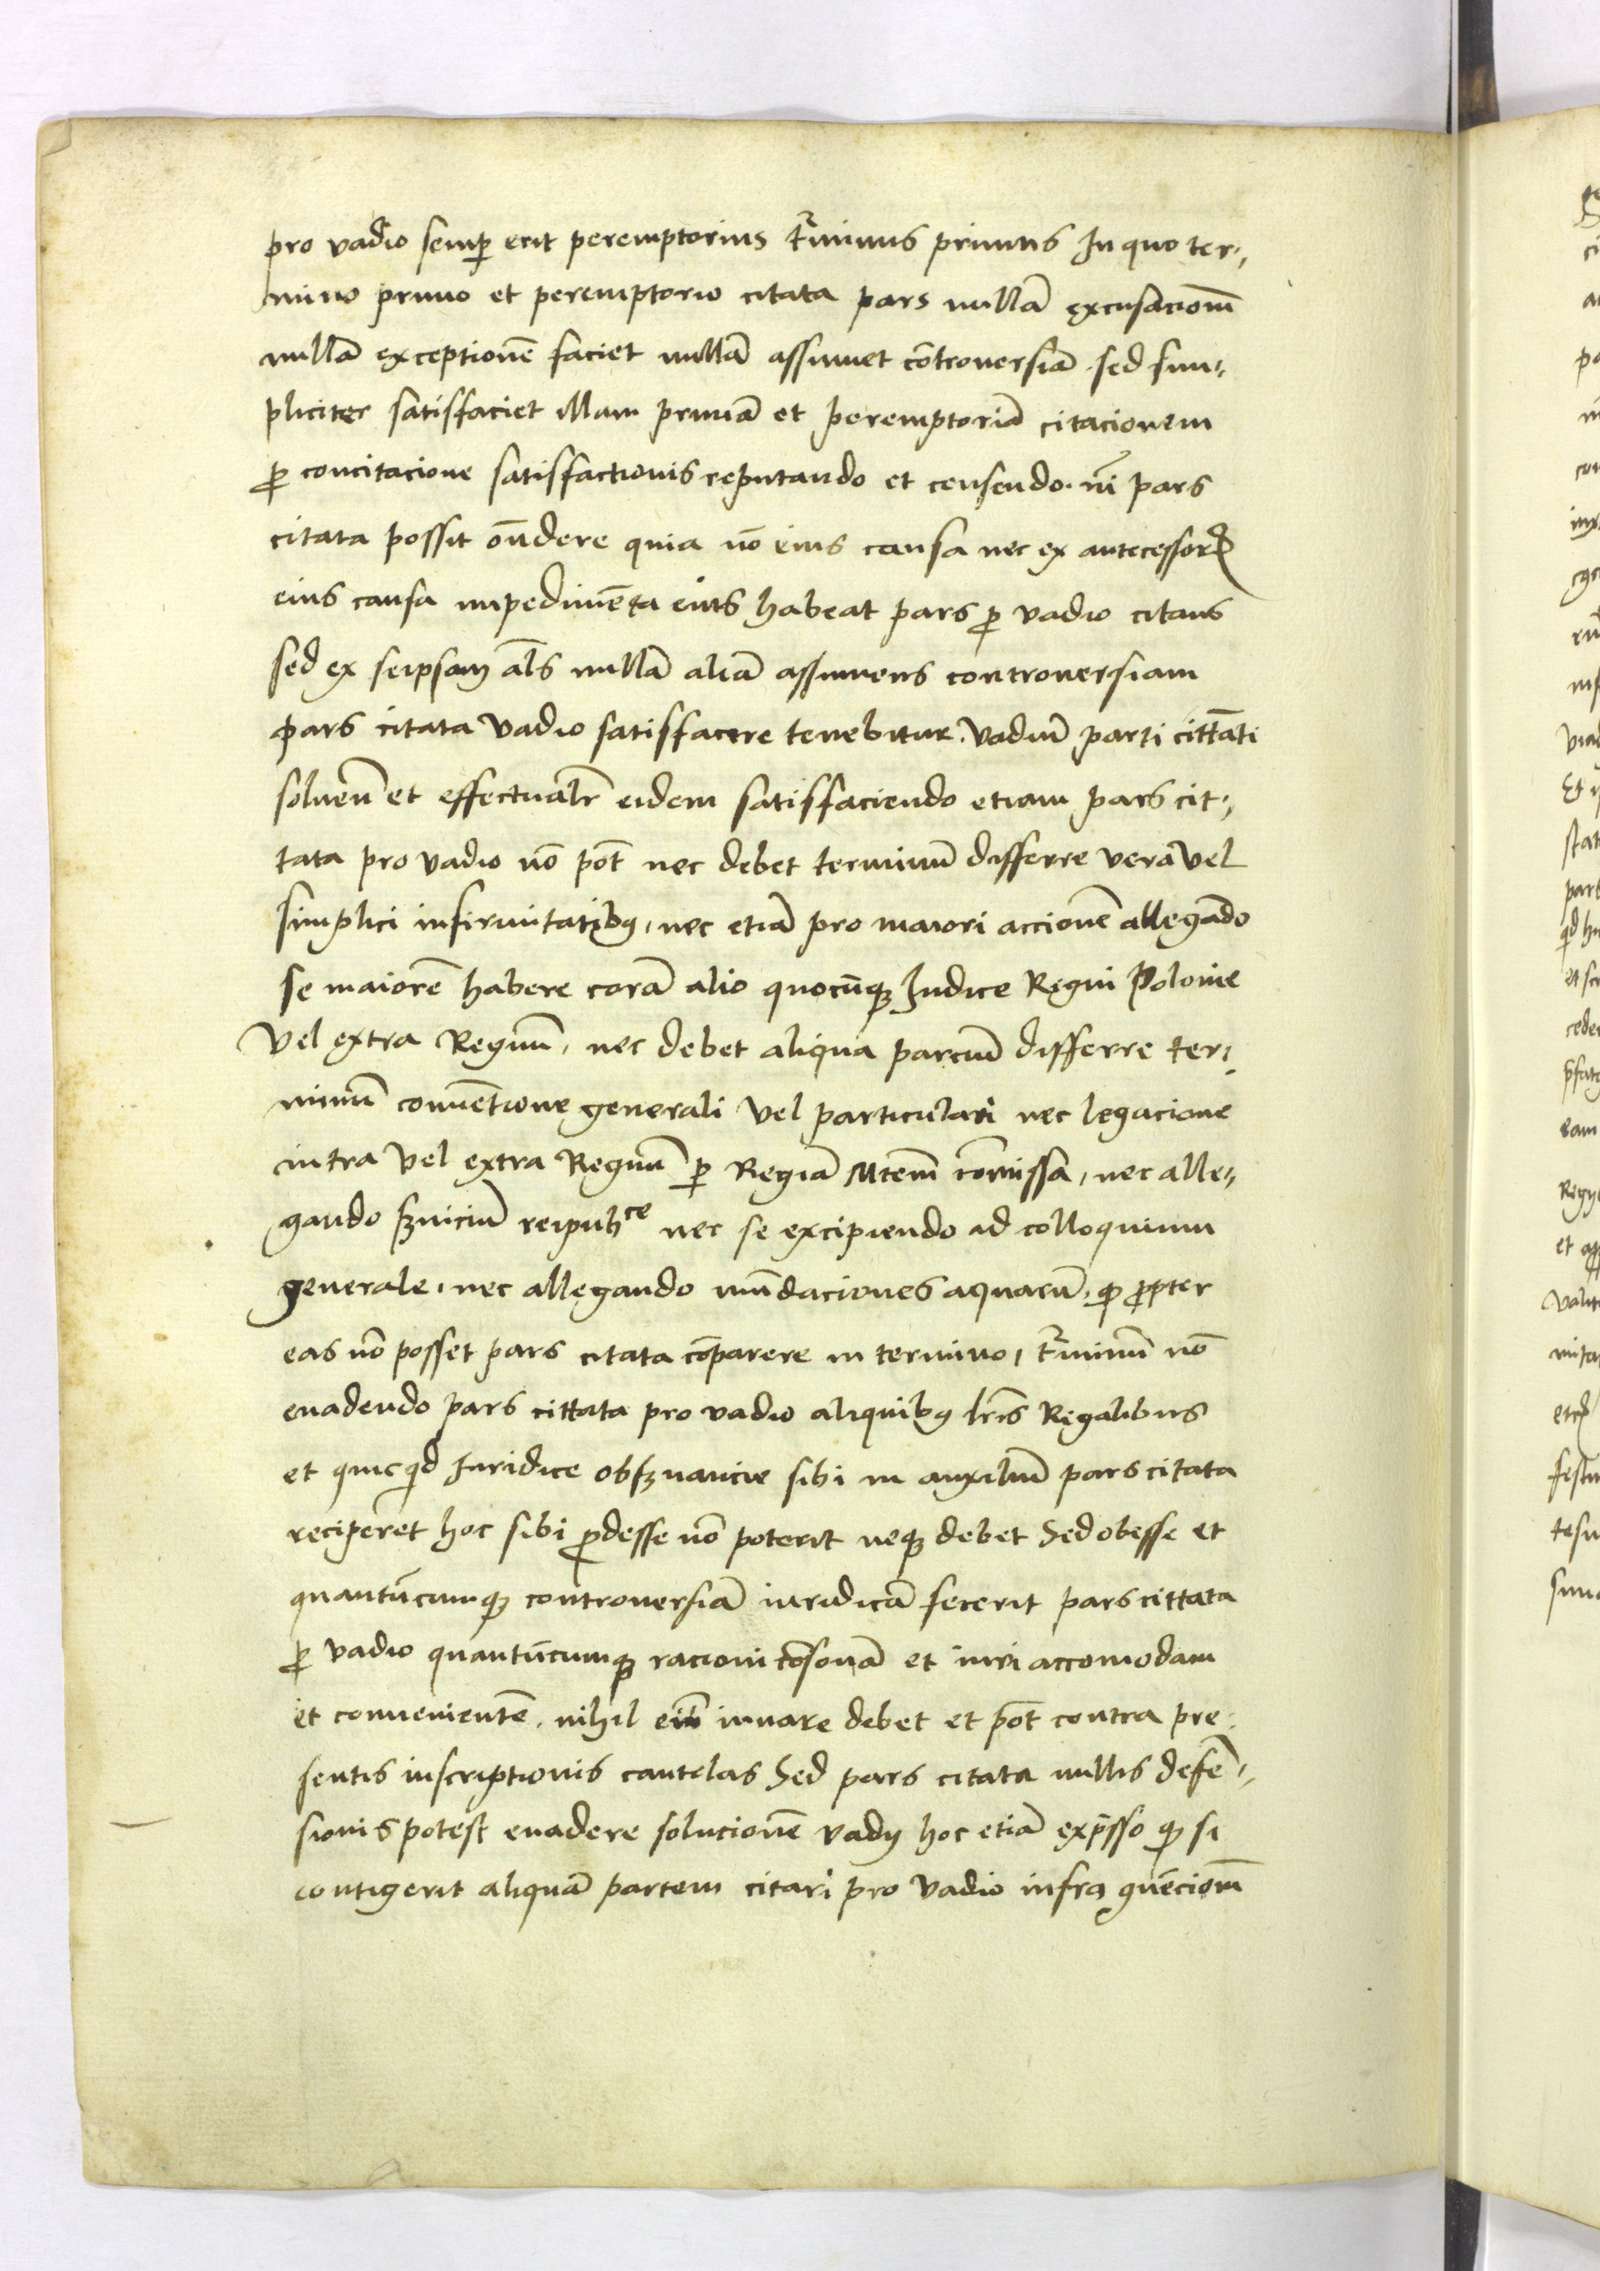 pro vadio semp erit peremptorius t̃minus primus In quo ter⸗
mino primo et peremptorio citata pars nullã excusacionẽ
nullã exceptionẽ faciet nullã assumet cõtroversiã sed sim⸗
pliciter satisfaciet illam primã et peremptoriã citacionem
p concitacione satisfactionis reputando et censendo nĩ pars
citata possit oñdere quia nõ eius causa nec ex antecessorꝝ
eius causa impedimẽta eius habeat pars p vadio citans
sed ex seipsam als nullã aliã assumens controversiam
pars citata vadio satisfacere tenebitur vadiũ parti cittãti
soluen̄ et effectualr̃ eidem satisfaciendo etiam pars cit⸗
tata pro vadio nõ põt nec debet terminũ differre vera vel
simplici infirmitatibꝫ, nec etiã pro maiori accionẽ allegãdo
se maiorẽ habere corã alio quocũqꝫ Iudice Regni Polonie
vel extra Regnũ, nec debet aliqua parciũ differre ter⸗
minũ conuẽtione generali vel particulari nec legacione
intra vel extra Regnũ p Regiã Mtem̃ com̃issa, nec alle⸗
gando s̃uiciũ reipubce nec se excipiendo ad colloquium
generale, nec allegando inũdaciones aquarũ, qꝫ p̱pter
eas nõ posset pars citata cõparere in termino, t̃minũ nõ
euadendo pars cittata pro vadio aliquibꝫ lr̃is Regalibus
et quicqd Iuridice obs̃uancie sibi in auxiliũ pars citata
reciperet hoc sibi p̱desse nõ poterit neqꝫ debet Sed obesse et
quantũcumqꝫ controuersiã iuridicã fecerit pars cittata
p vadio quantũcumqꝫ racioni cõsonã et iuri accomodam
et conuenientẽ, nihil eim̃ iuuare debet et põt contra pre⸗
sentis inscriptionis cautelas Sed pars citata nullis defẽ⸗
sionis potest euadere solucionẽ vadij hoc etiã exp̃sso qꝫ si
contigerit aliquã partem citari pro vadio infra quẽcionẽ